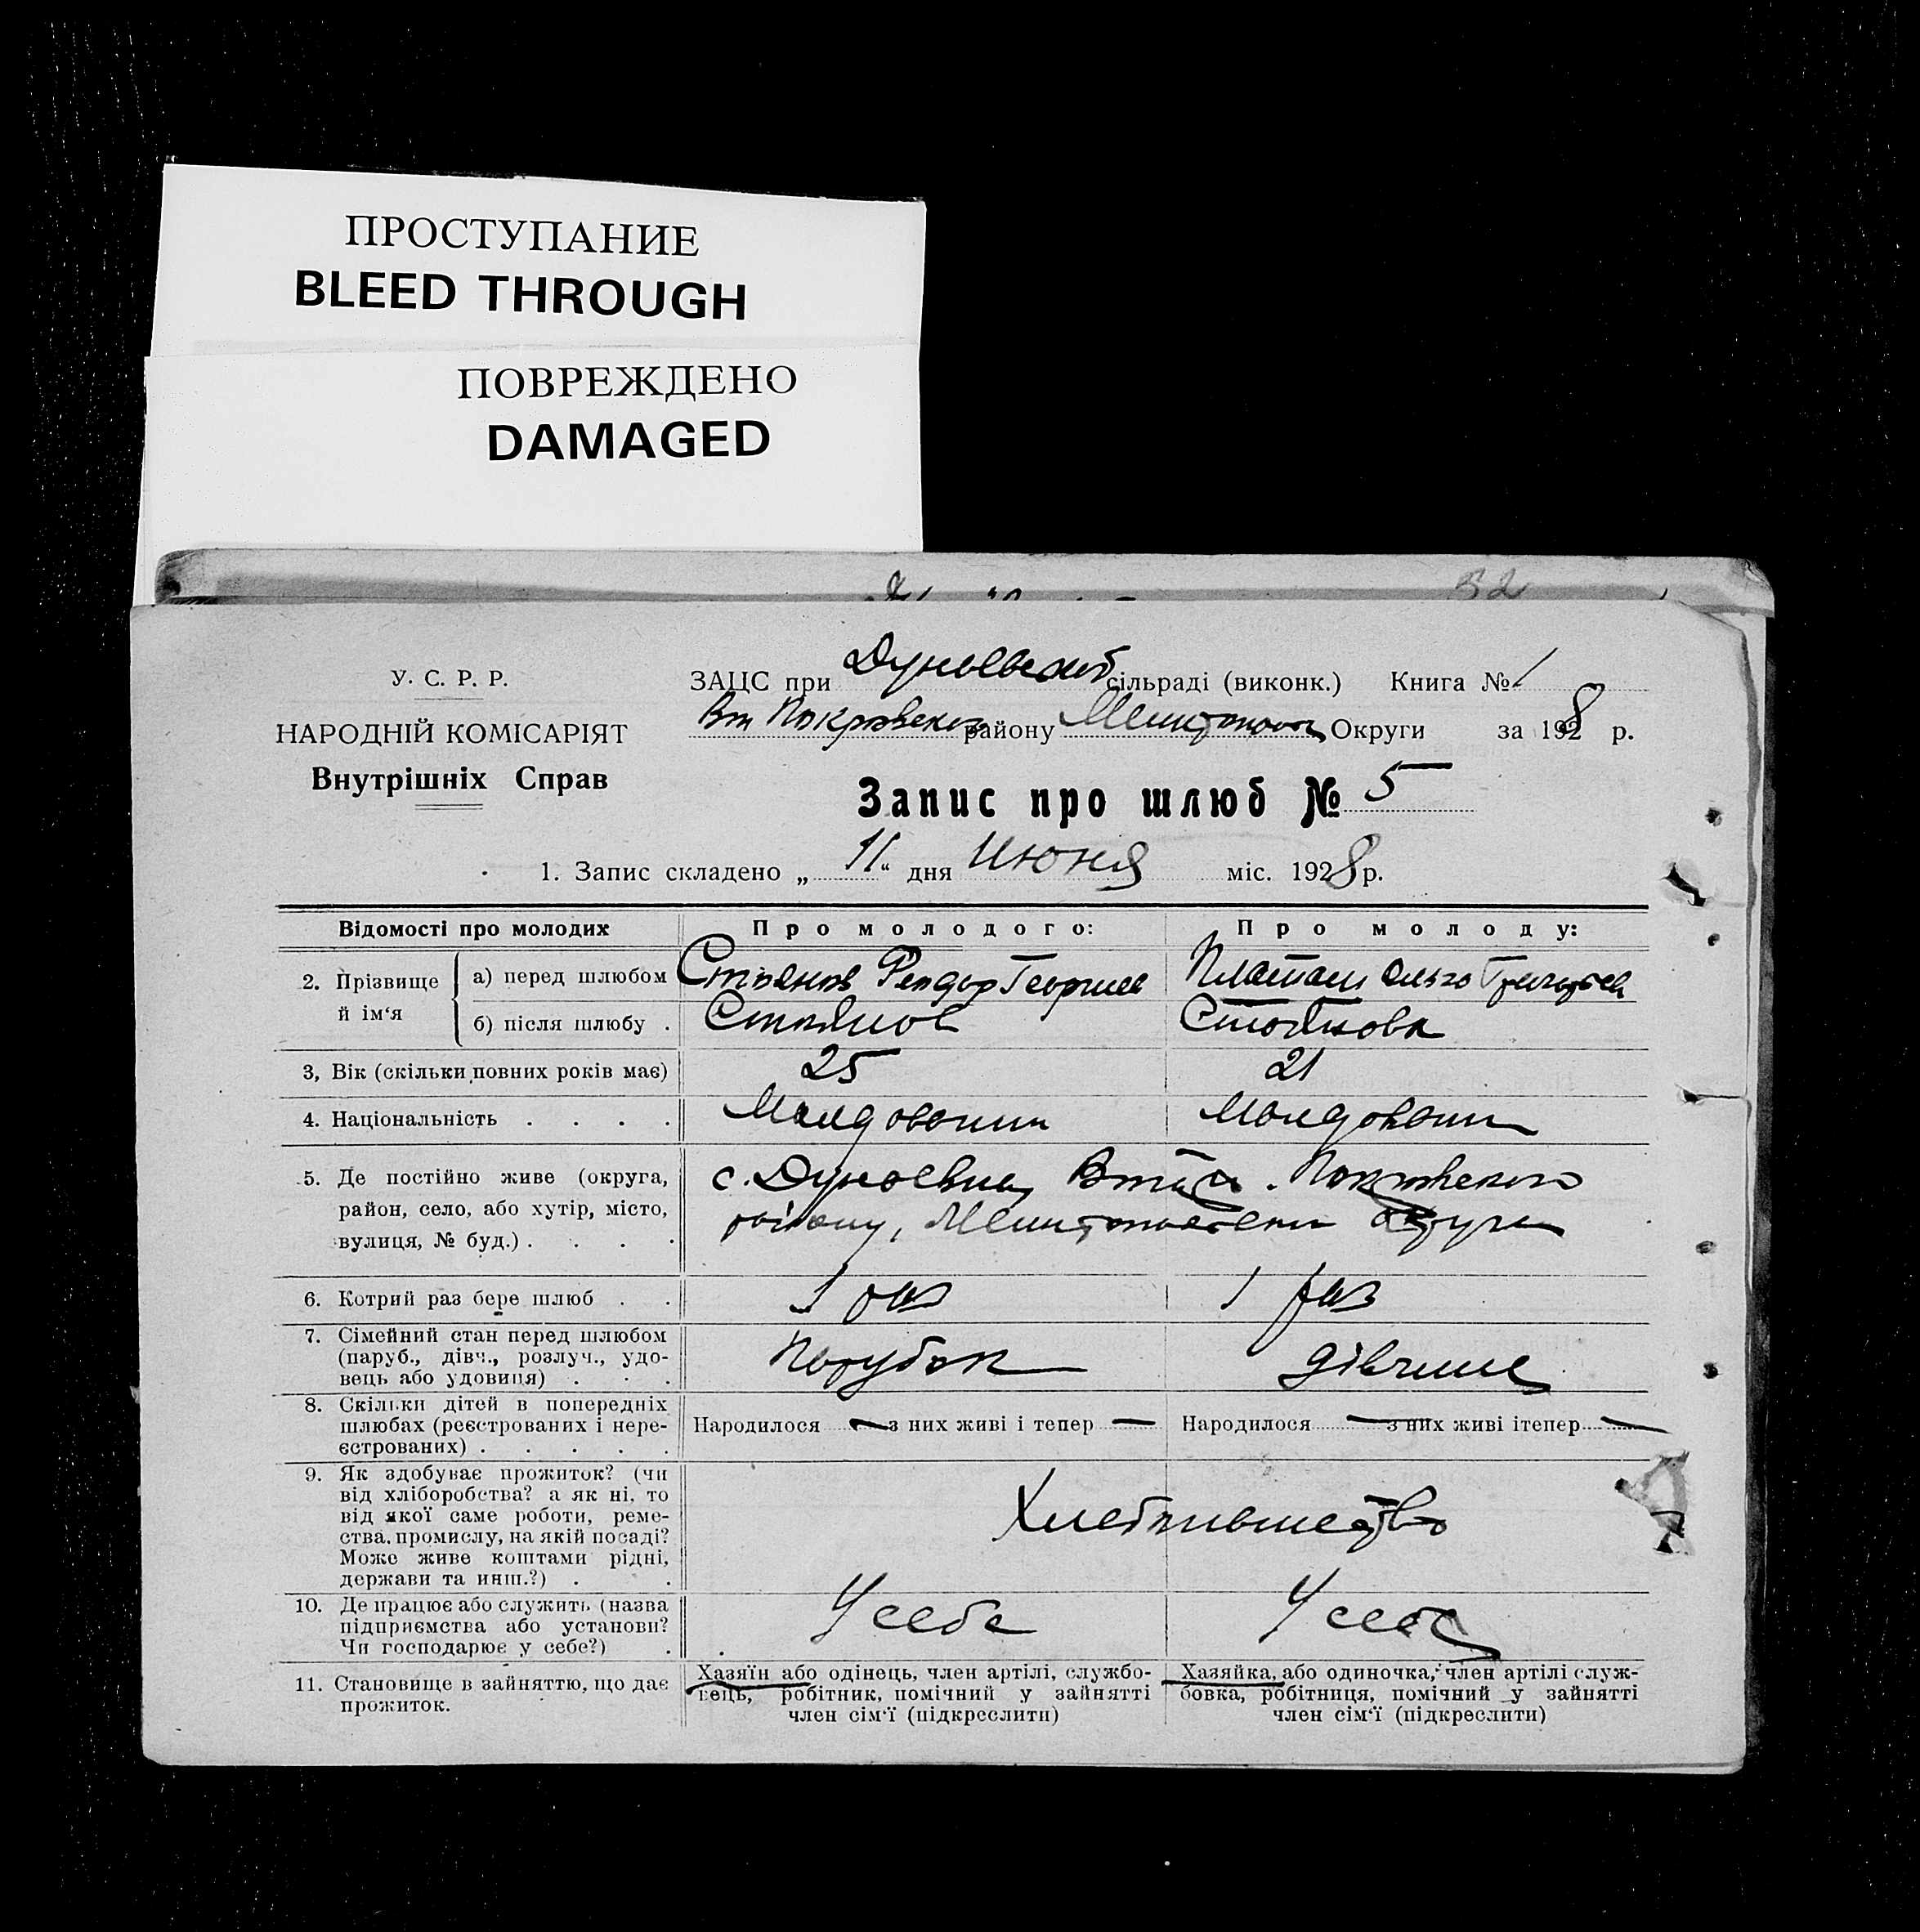 ПРОСТУПАНИЕ
BLEED THROUGH
ПОВРЕЖДЕНО
DAMAGED
52
У. С. Р. Р.
НАРОДНІЙ КОМІСАРІЯТ
Внутрішніх Справ
ЗАЦС при Дунаевской сільраді (виконк.) Книга № 1
Вт Покровского району Мелитопол Округи за 1928 р.
Запис про шлюб № 5
1. Запис складено „ 11 “ дня Июня міс. 1928 р.
Відомості про молодих Про молодого: Про молоду:
2. Прізвище й ім‘я
а) перед шлюбом Стоянов Феодор Георгиев Ольга Григорьев
б) після шлюбу . Стоянов Стоянова
3, Вік (скільки повних років має) 25 21
4. Національність . . . . Молдованин Молдован
5. Де постійно живе (округа,
район, село, або хутір, місто,
вулиця, № буд.) . . . .
с. Дунаевка, Покровского
району, Мелитопольской округи
6. Котрий раз бере шлюб . . 1 раз 1 раз
7. Сімейний стан перед шлюбом
(паруб., дівч., розлуч., удо-
вець або удовиця) . . .
Парубок дівчина
8. Скільки дітей в попередніх
шлюбах (реєстрованих і нере-
єстрованих) . . . . .
Народилося — з них живі і тепер — Народилося — з них живі ітепер —
9. Як здобуває прожиток? (чи
від хліборобства? а як ні, то
від якої саме роботи, реме-
ства, промислу, на якій посаді?
Може живе коштами рідні,
держави та инш.?) . .
Хлебопашество
10. Де працює або служить (назва
підприємства або установи?
Чи господарює у себе?) .
У себе У себе
11. Становище в зайняттю, що дає
прожиток.
Хазяїн або одінець, член артілі, службо-
вець, робітник, помічний у зайнятті
член сім‘ї (підкреслити)
Хазяйка, або одиночка, член артілі служ-
бовка, робітниця, помічний у зайнятті
член сім‘ї (підкреслити)